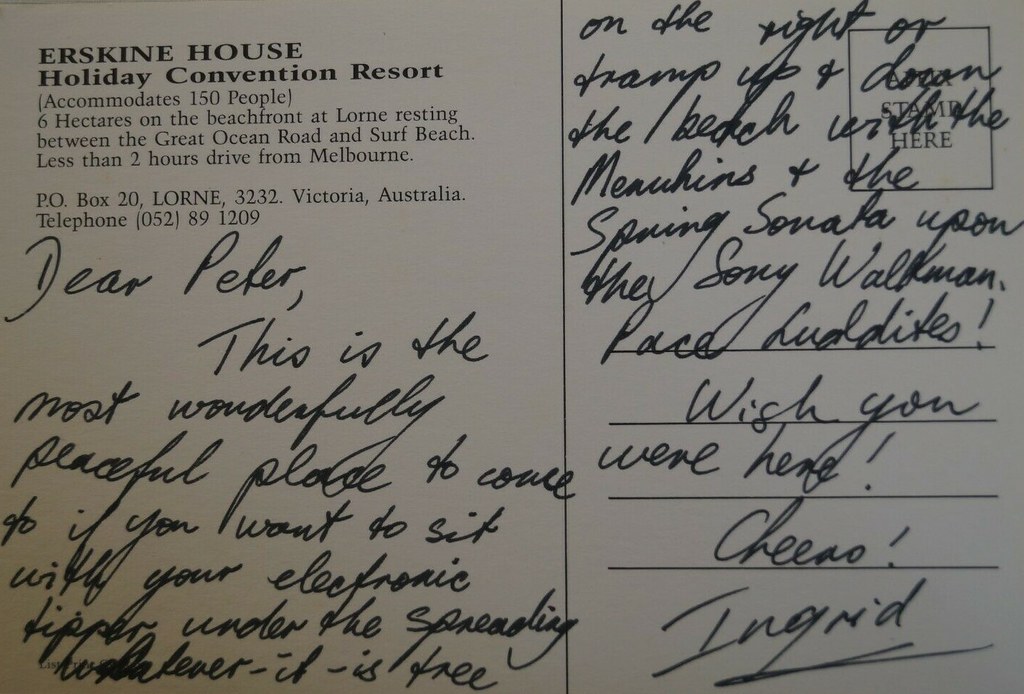 ERSKINE HOUSE
Holiday Convention Resort
(Accommodates 150 People)
6 Hectares on the beachfront at Lorne resting
between the Great Ocean Road and Surf Beach.
Less than 2 hours drive from Melbourne.
P.O. Box 20, LORNE, 3232. Victoria, Australia.
Telephone (052) 89 1209
Dear Peter,
This is the
most wonderfully
peaceful place to come
to if you want to sit
with your electronic
tipper under the spreading
whatever-it-is tree
on the right or
tramp up & down
the beach with the
Menuhins & the
Spring Sonata upon
the Sony Walkman.
Pace Luddites!
Wish you
were here!
Cheers!
Ingrid
STAMP
HERE